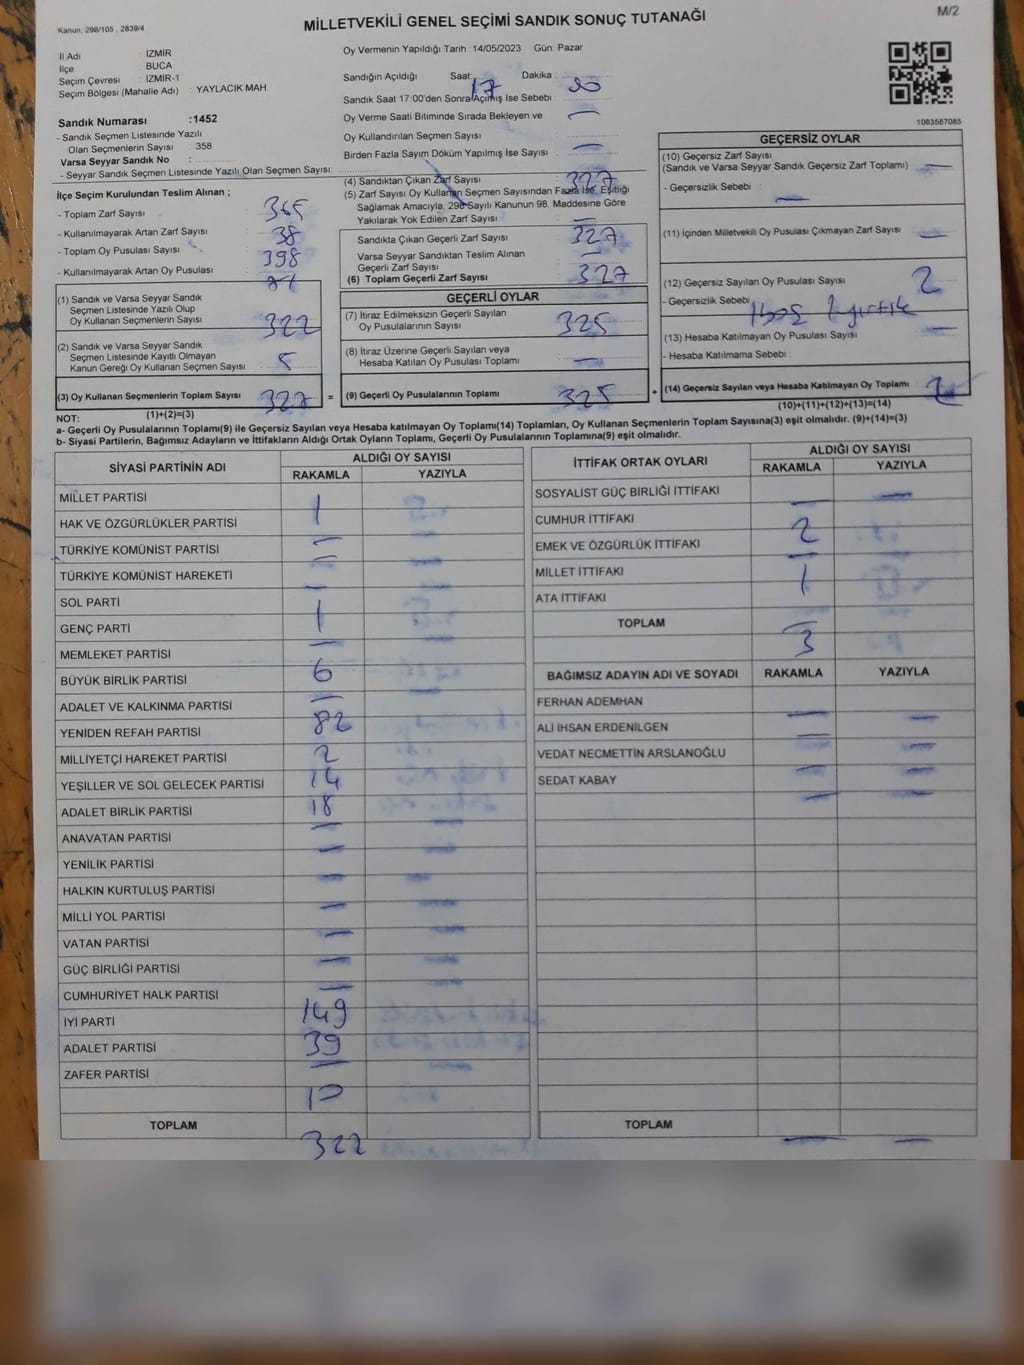 Kanun, 298/105 , 2839/4
MİLLETVEKİLİ GENEL SEÇİMİ SANDIK SONUÇ TUTANAĞI
M/2
İl Adı : İZMİR
İlçe BUCA
Seçim Çevresi : İZMİR-1
Seçim Bölgesi (Mahalle Adı) : YAYLACIK MAH.
Oy Vermenin Yapıldığı Tarih : 14/05/2023 Gün: Pazar
Sandığın Açıldığı Saat: 17 Dakika :
Sandık Saat 17:00'den Sonra Açılmış İse Sebebi : —
Oy Verme Saati Bitiminde Sırada Bekleyen ve
Oy Kullandırılan Seçmen Sayısı —
Birden Fazla Sayım Döküm Yapılmış İse Sayısı —
1083567085
Sandık Numarası :1452
- Sandık Seçmen Listesinde Yazılı
Olan Seçmenlerin Sayısı : 358
Varsa Seyyar Sandık No :
- Seyyar Sandık Seçmen Listesinde Yazılı Olan Seçmen Sayısı :
İlçe Seçim Kurulundan Teslim Alınan ;
- Toplam Zarf Sayısı : 365
- Kullanılmayarak Artan Zarf Sayısı : 38
- Toplam Oy Pusulası Sayısı : 398
- Kullanılmayarak Artan Oy Pusulası : 71
(1) Sandık ve Varsa Seyyar Sandık
Seçmen Listesinde Yazılı Olup
Oy Kullanan Seçmenlerin Sayısı 322
(2) Sandık ve Varsa Seyyar Sandık
Seçmen Listesinde Kayıtlı Olmayan
Kanun Gereği Oy Kullanan Seçmen Sayısı 5
(3) Oy Kullanan Seçmenlerin Toplam Sayısı 327 =
(1)+(2)=(3)
(4) Sandıktan Çıkan Zarf Sayısı 327
(5) Zarf Sayısı Oy Kullanan Seçmen Sayısından Fazla İse, Eşitliği
Sağlamak Amacıyla, 298 Sayılı Kanunun 98. Maddesine Göre
Yakılarak Yok Edilen Zarf Sayısı —
Sandıkta Çıkan Geçerli Zarf Sayısı 327
Varsa Seyyar Sandıktan Teslim Alınan
Geçerli Zarf Sayısı —
(6) Toplam Geçerli Zarf Sayısı 327
GEÇERLİ OYLAR
(7) İtiraz Edilmeksizin Geçerli Sayılan
Oy Pusulalarının Sayısı 325
(8) İtiraz Üzerine Geçerli Sayılan veya
Hesaba Katılan Oy Pusulası Toplamı —
(9) Geçerli Oy Pusulalarının Toplamı 325 +
GEÇERSİZ OYLAR
(10) Geçersiz Zarf Sayısı
(Sandık ve Varsa Seyyar Sandık Geçersiz Zarf Toplamı) —
- Geçersizlik Sebebi : —
(11) İçinden Milletvekili Oy Pusulası Çıkmayan Zarf Sayısı —
(12) Geçersiz Sayılan Oy Pusulası Sayısı 2
- Geçersizlik Sebebi 1 boş 1 yırtık
(13) Hesaba Katılmayan Oy Pusulası Sayısı —
- Hesaba Katılmama Sebebi :
(14) Geçersiz Sayılan veya Hesaba Katılmayan Oy Toplamı 2
(10)+(11)+(12)+(13)=(14)
NOT:
a- Geçerli Oy Pusulalarının Toplamı(9) ile Geçersiz Sayılan veya Hesaba katılmayan Oy Toplamı(14) Toplamları, Oy Kullanan Seçmenlerin Toplam Sayısına(3) eşit olmalıdır. (9)+(14)=(3)
b- Siyasi Partilerin, Bağımsız Adayların ve İttifakların Aldığı Ortak Oyların Toplamı, Geçerli Oy Pusulalarının Toplamına(9) eşit olmalıdır.
SİYASİ PARTİNİN ADI
ALDIĞI OY SAYISI
RAKAMLA YAZIYLA
MİLLET PARTİSİ 1
HAK VE ÖZGÜRLÜKLER PARTİSİ —
TÜRKİYE KOMÜNİST PARTİSİ —
TÜRKİYE KOMÜNİST HAREKETİ —
SOL PARTİ 1
GENÇ PARTİ —
MEMLEKET PARTİSİ 6
BÜYÜK BİRLİK PARTİSİ —
ADALET VE KALKINMA PARTİSİ 82
YENİDEN REFAH PARTİSİ 2
MİLLİYETÇİ HAREKET PARTİSİ 14
YEŞİLLER VE SOL GELECEK PARTİSİ 18
ADALET BİRLİK PARTİSİ —
ANAVATAN PARTİSİ —
YENİLİK PARTİSİ —
HALKIN KURTULUŞ PARTİSİ —
MİLLİ YOL PARTİSİ —
VATAN PARTİSİ —
GÜÇ BİRLİĞİ PARTİSİ —
CUMHURİYET HALK PARTİSİ 149
İYİ PARTİ 39
ADALET PARTİSİ —
ZAFER PARTİSİ 10
TOPLAM 322
İTTİFAK ORTAK OYLARI
ALDIĞI OY SAYISI
RAKAMLA YAZIYLA
SOSYALİST GÜÇ BİRLİĞİ İTTİFAKI — —
CUMHUR İTTİFAKI 2
EMEK VE ÖZGÜRLÜK İTTİFAKI —
MİLLET İTTİFAKI 1
ATA İTTİFAKI —
TOPLAM 3
BAĞIMSIZ ADAYIN ADI VE SOYADI RAKAMLA YAZIYLA
FERHAN ADEMHAN — —
ALİ İHSAN ERDENİLGEN — —
VEDAT NECMETTİN ARSLANOĞLU — —
SEDAT KABAY — —
TOPLAM — —